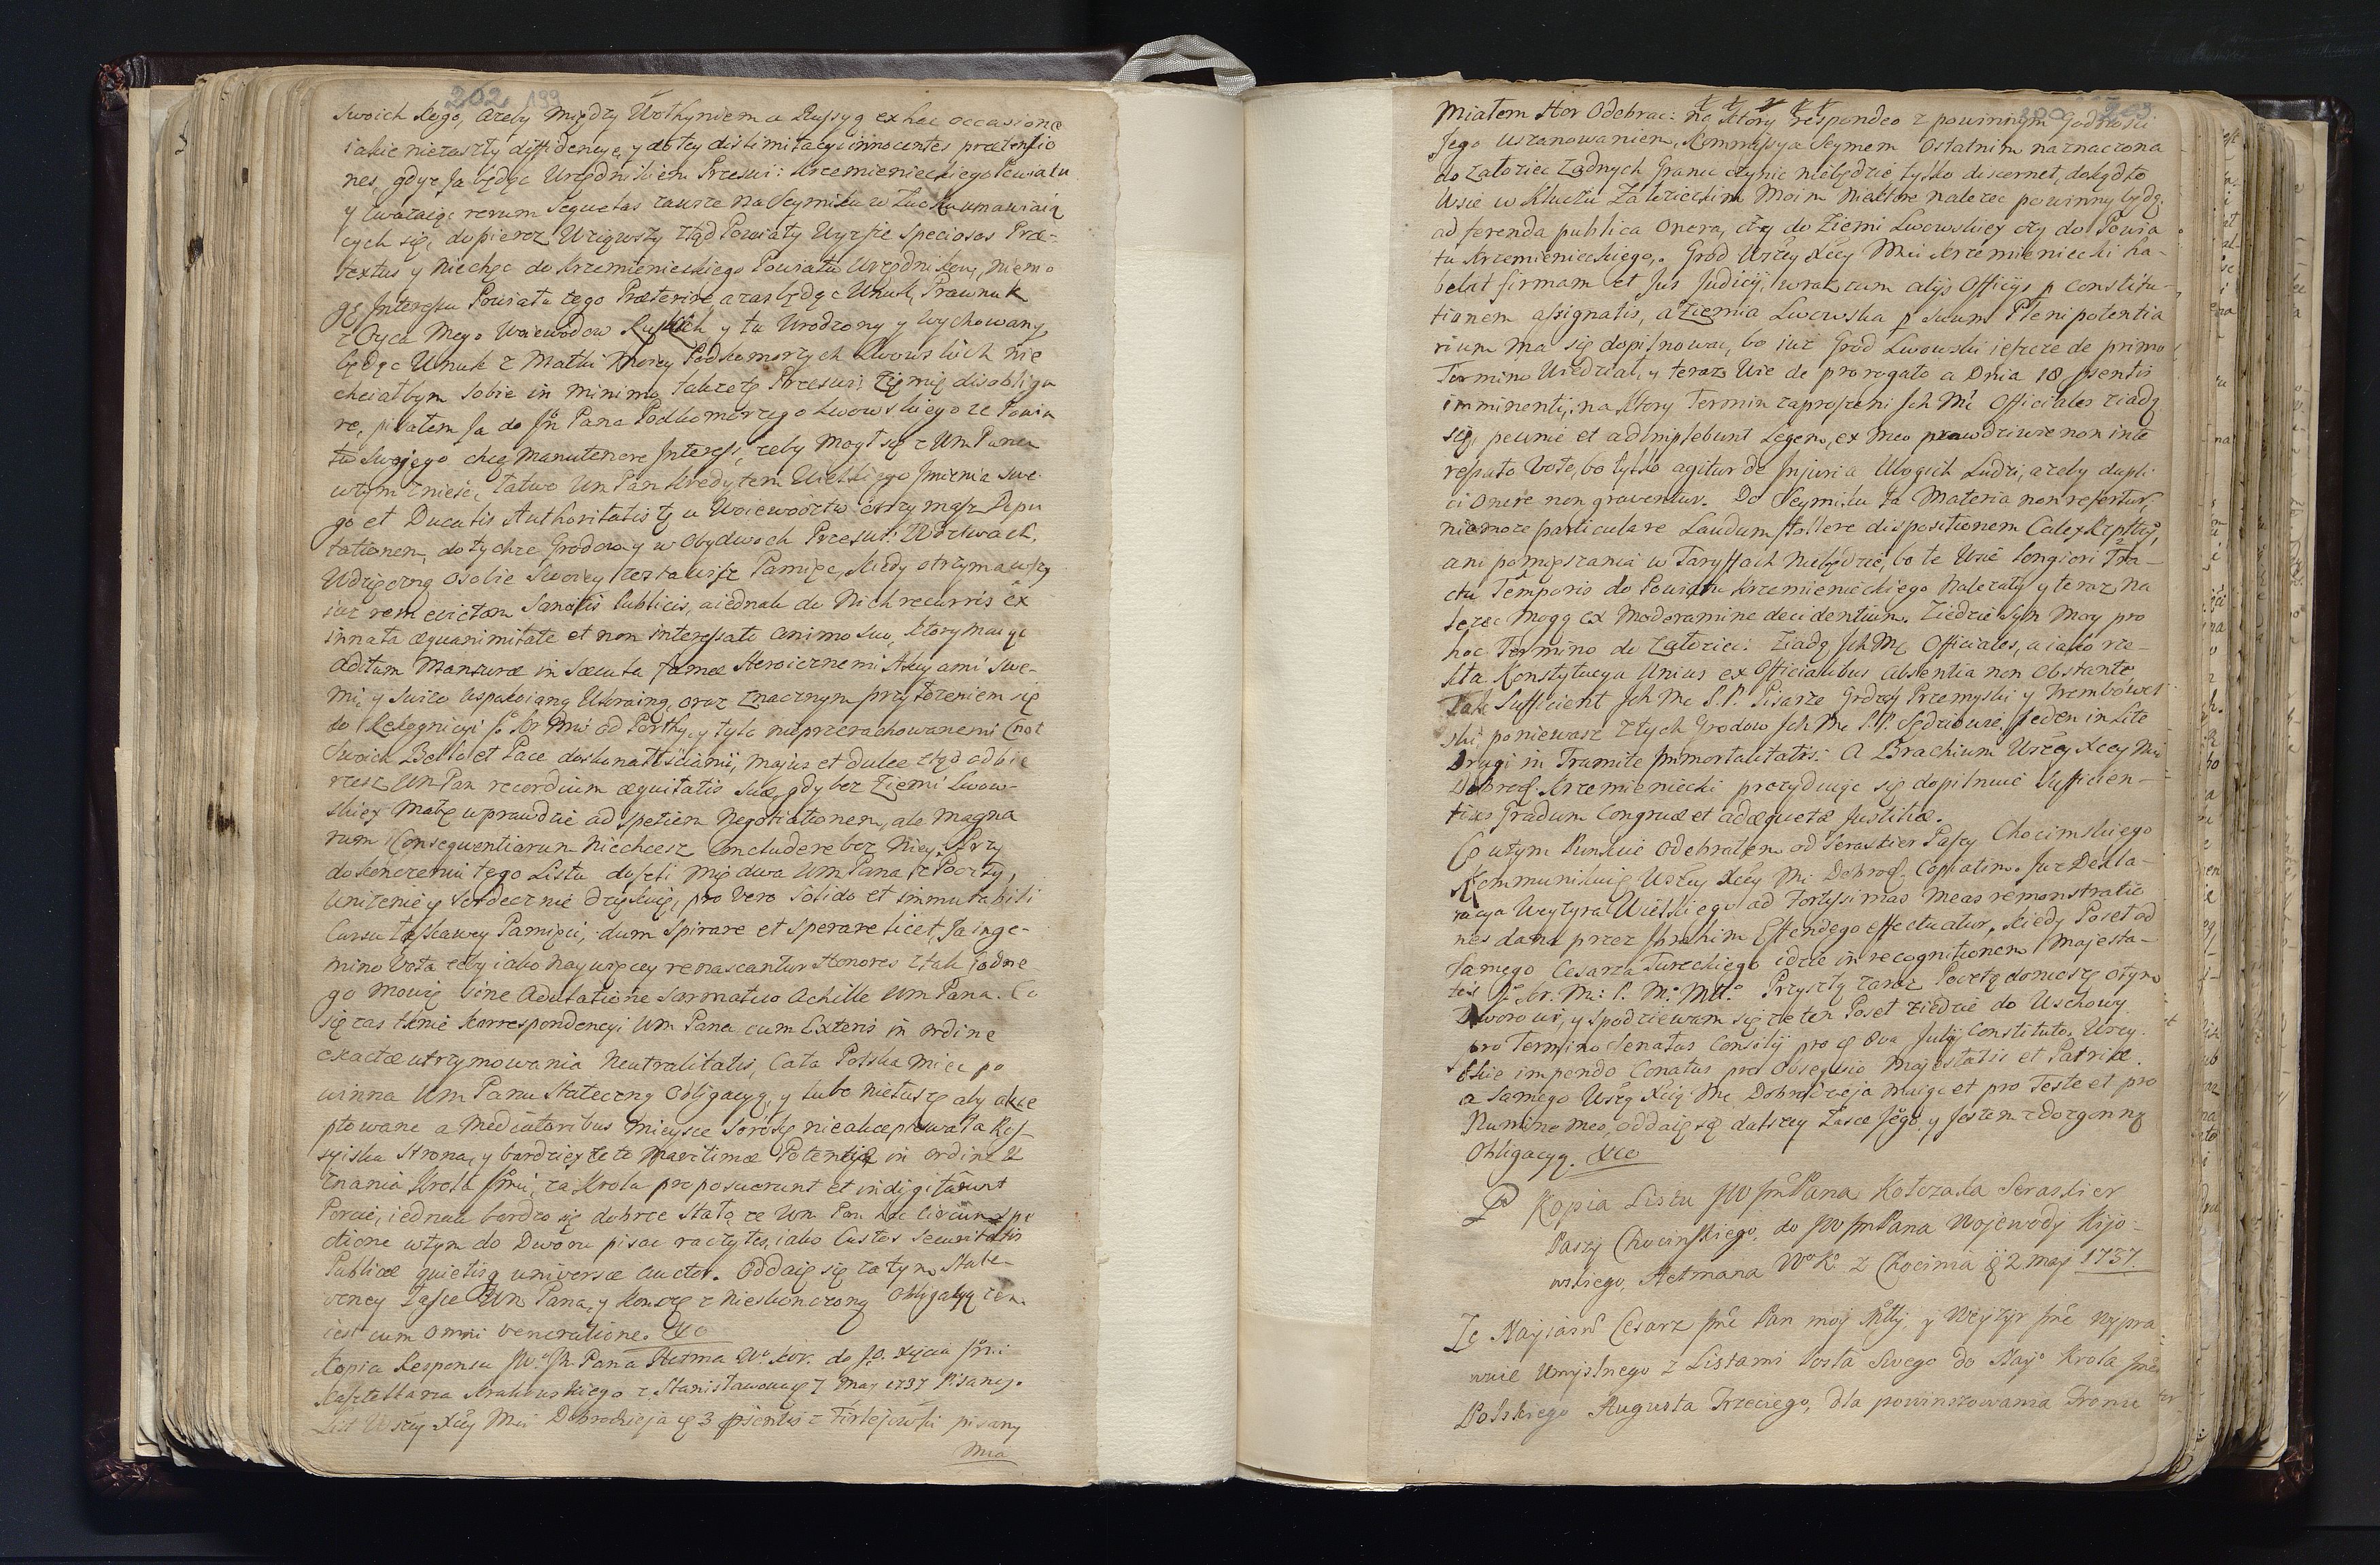 202 199
Swoich Kogo, ażeby między Wołhyniem a Russyą ex hac occasione
iakie niezaszły diffidencye, y do tey dislimitacyi innocentes prætensio
nes, gdyż Ja będąc Urzędnikiem Przeswi: Krzemienieckiego Powiatu
y uwazaiąc rerum sequelas zawsze na Seymiku w Łucku umawiaią
cych się, dopieroz wziąwszy ztąd Powiaty Wyższe speciosos Præ-
textus y niechęć do Krzemienieckiego Powiatu Urzędników, niemo
gę Interessu Powiatu tego Præterire a zas będąc Wnuk, Prawnuk
z Oyca Mego Woiewodow Ruskich y tu Urodzony y Wychowany,
będąc Wnuk z Matki Moiey Podkomorzych Lwowskich nie
chciałbym sobie in minimo takze tę Przeswi: Ziemię disobliga
re, pisałem Ja do Jm Pana Podkomorzego Lwowskiego ze Powia
tu Swojego chcę Manutenere Interess, zeby mogł się z Um Panem
w tym znieść, łatwo Um Pan Kredytem Wielkiego Imienia Swe
go et Ducalis Authoritatis tę u Woiewodztw otrzymasz Depu
tationem, do tychże Grodow y w obydwoch Przeswi: Wdztwach,
Wdzięczną osobie Swoiey zostawisz Pamięć, kiedy otrzymawszy
iuż rem evictam Sancitis Publicis, a iednak do Nich recurris ex
innata æquanimitate et non interessato animo suo, ktory maiąc
aditum Mansuræ in Sæcula famæ Heroicznemi Akcyami Swe-
mi, y swizo uspokoioną Ukrainą, oraz znacznym przyłozeniem się
do Rekognicyi Jo Kr Mwi od Porthy, y tylo nieprzerachowanemi Cnot
Swoich Bello et Pace doskonałościami, majus et dulce ztąd odbie
rzesz Um Pan recordium æquitatis suæ, gdy bez Ziemi Lwow-
skiey Małą w prawdzie ad spetiem Negotiationem, ale magna
rum Consequentiarum niechcesz concludere bez Niey. Przy
dokonczeniu tego Listu doszli mię dwa Um Pana z Poczty,
unizenie y serdecznie dziękuię, pro vero solido et immutabili
Cursu łaskawey Pamięci, dum Spirare et Sperare licet, Ja inge-
mino Vota zeby iako naywięcey renascantur Honores z tak godne
go mowię sine Adulatione Sarmatico Achille Um Pana. Co
się zas tknie Korrespondencyi Um Pana cum Exteris in ordine
exactæ utrzymowania Neutralitatis, Cała Polska mieć po
winna Um Panu Stateczną Obligacyą, y lubo nietuszę aby akce
ptowane a Mediatoribus mieysce Soroky nieakceptowała Ros-
syiska strona, y bardziey ze te Maritimæ Potentiæ in ordine u
znania Krola Jmci, za Krola proposuerunt et indigitarunt
Porcie, iednak bardzo się dobrze stało, ze Um Pan hac Circumspe
ctione w tym do Dworu pisać raczyłes, iako Custos Securitatis
Publicæ quietisq universæ auctor. Oddaię się za tym State-
czney Łasce Um Pana, y konczę z nieskonczoną Obligacyą zem
iest cum omni veneratione. &c
Kopia Responsu JW. Jm Pana Hetma W. Kor. do J.O. Xięcia Jmci
Kasztellana Krakowskiego z Stanisławowa ę 7 Maj 1737 Pisany.
List Wszey Xcey Mci Dobrodzieja ę 3 præsentis z Firlejowki pisany
Mia
200 203
Miałem Hor Odebrać: na ktory respondeo z powinnym Godności
Jego uszanowaniem, Kommissya Seymem Ostatnim naznaczona
do Załoziec żadnych Granic czynić niebędzie tylko discernet, dokąd to
Wsie w Kluczu Załozieckim Moim niektore nalezeć powinny będą,
ad ferenda publica onera, czy do Ziemi Lwowskiey czy do Powia
tu Krzemienieckiego. Grod Wszey Xcey Mci Krzemieniecki ha-
belat firmam et Jus Judicij, wraz cum alijs Officijs p Constitu-
tionem assignatis, a Ziemia Lwowska p suum Plenipotentia
rium ma się dopilnować, bo iuz Grod Lwowski ieszcze de primo
Termino wiedział, y teraz wie de prorogato a Dnia 18 præsentis
imminenti, na ktory Termin zaproszeni Jch Mc Officiales ziadą
się, pewnie et adimplebunt Legem, ex meo prawdziwie non inte
ressato Voto, bo tylko agitur de Injuria Ubogich Ludzi, azeby dupli
ci onere non graventur. Do Seymiku ta Materia non refertur,
niemoze particulare Laudum tollere dispositionem Całey Rzpltey,
ani pomięszania w Taryffach niebędzie, bo te Wsie longiori Tra-
ctu Temporis do Powiatu Krzemienieckiego nalezały y teraz na
lezeć mogą ex Moderamine decidentium. Ziedzie Syn Moy pro
hoc Termino do Załoziec: Ziadą Jch Mc Officiales, a iako rze-
kła Konstytucya Unius ex Officialibus absentia non Obstante,
Tak Sufficient Jch Mc P.P. Pisarze Grdzcy Przemyski y Trembowel
ski, poniewasz z tych Grodow Jch Mc P.P. Sędziowie, Jeden in Lite
Drugi in Tramite Immortalitatis. A Brachium Wszey Xcey Mci
Dobrod. Krzemieniecki prezyduiąc się dopilnuie sufficien-
tius Gradum Congruæ et adæquatæ Justitiæ.
Co w tym Punkcie odebrałem od Seraskier Paszy Chocimskiego
Kommunikuię Wszey Xcey Mci Dobrod. Copiatim. Juz Dekla-
racya Wezyra Wielkiego ad fortissimas meas remonstratio
nes dana przez Ibrahim Effendego effectuatur, kiedy Poseł od
samego Cesarza Tureckiego idzie in recognitionem Majesta-
tis Jo. Kr. Mci P. M. Mił. Przyszłą zaraz Pocztą doniosę o tym
Dworowi, y spodziewam się ze ten Poseł ziedzie do Uschowy
pro Termino Senatus Consilij pro ę 8va Julij Constituto. Wszy-
tkie impendo Conatus pro Obsequio Majestatis et Patriæ.
a samego Wszę Xcią Mc Dobrodzieja maiąc et pro Teste et pro
Numine meo, oddaię się dalszey Łasce Jego, y Jestem z dozgonną
Obligacyą. &c
Kopia Listu JW JmPana Kołczaka Seraskier
Paszy Chocimskiego, do JW JmPana Wojewody Kijo-
wskiego, Hetmana W K. z Chocimia ę 2 maj 1737.
Ze Nayiasn Cesarz Jmc Pan moy Młty, y Wezyr Jmc wypra
wuie Umyslnego z Listami Posła Swego do Nay Krola Jmci
Polskiego Augusta Trzeciego, dla powinszowania Tronu